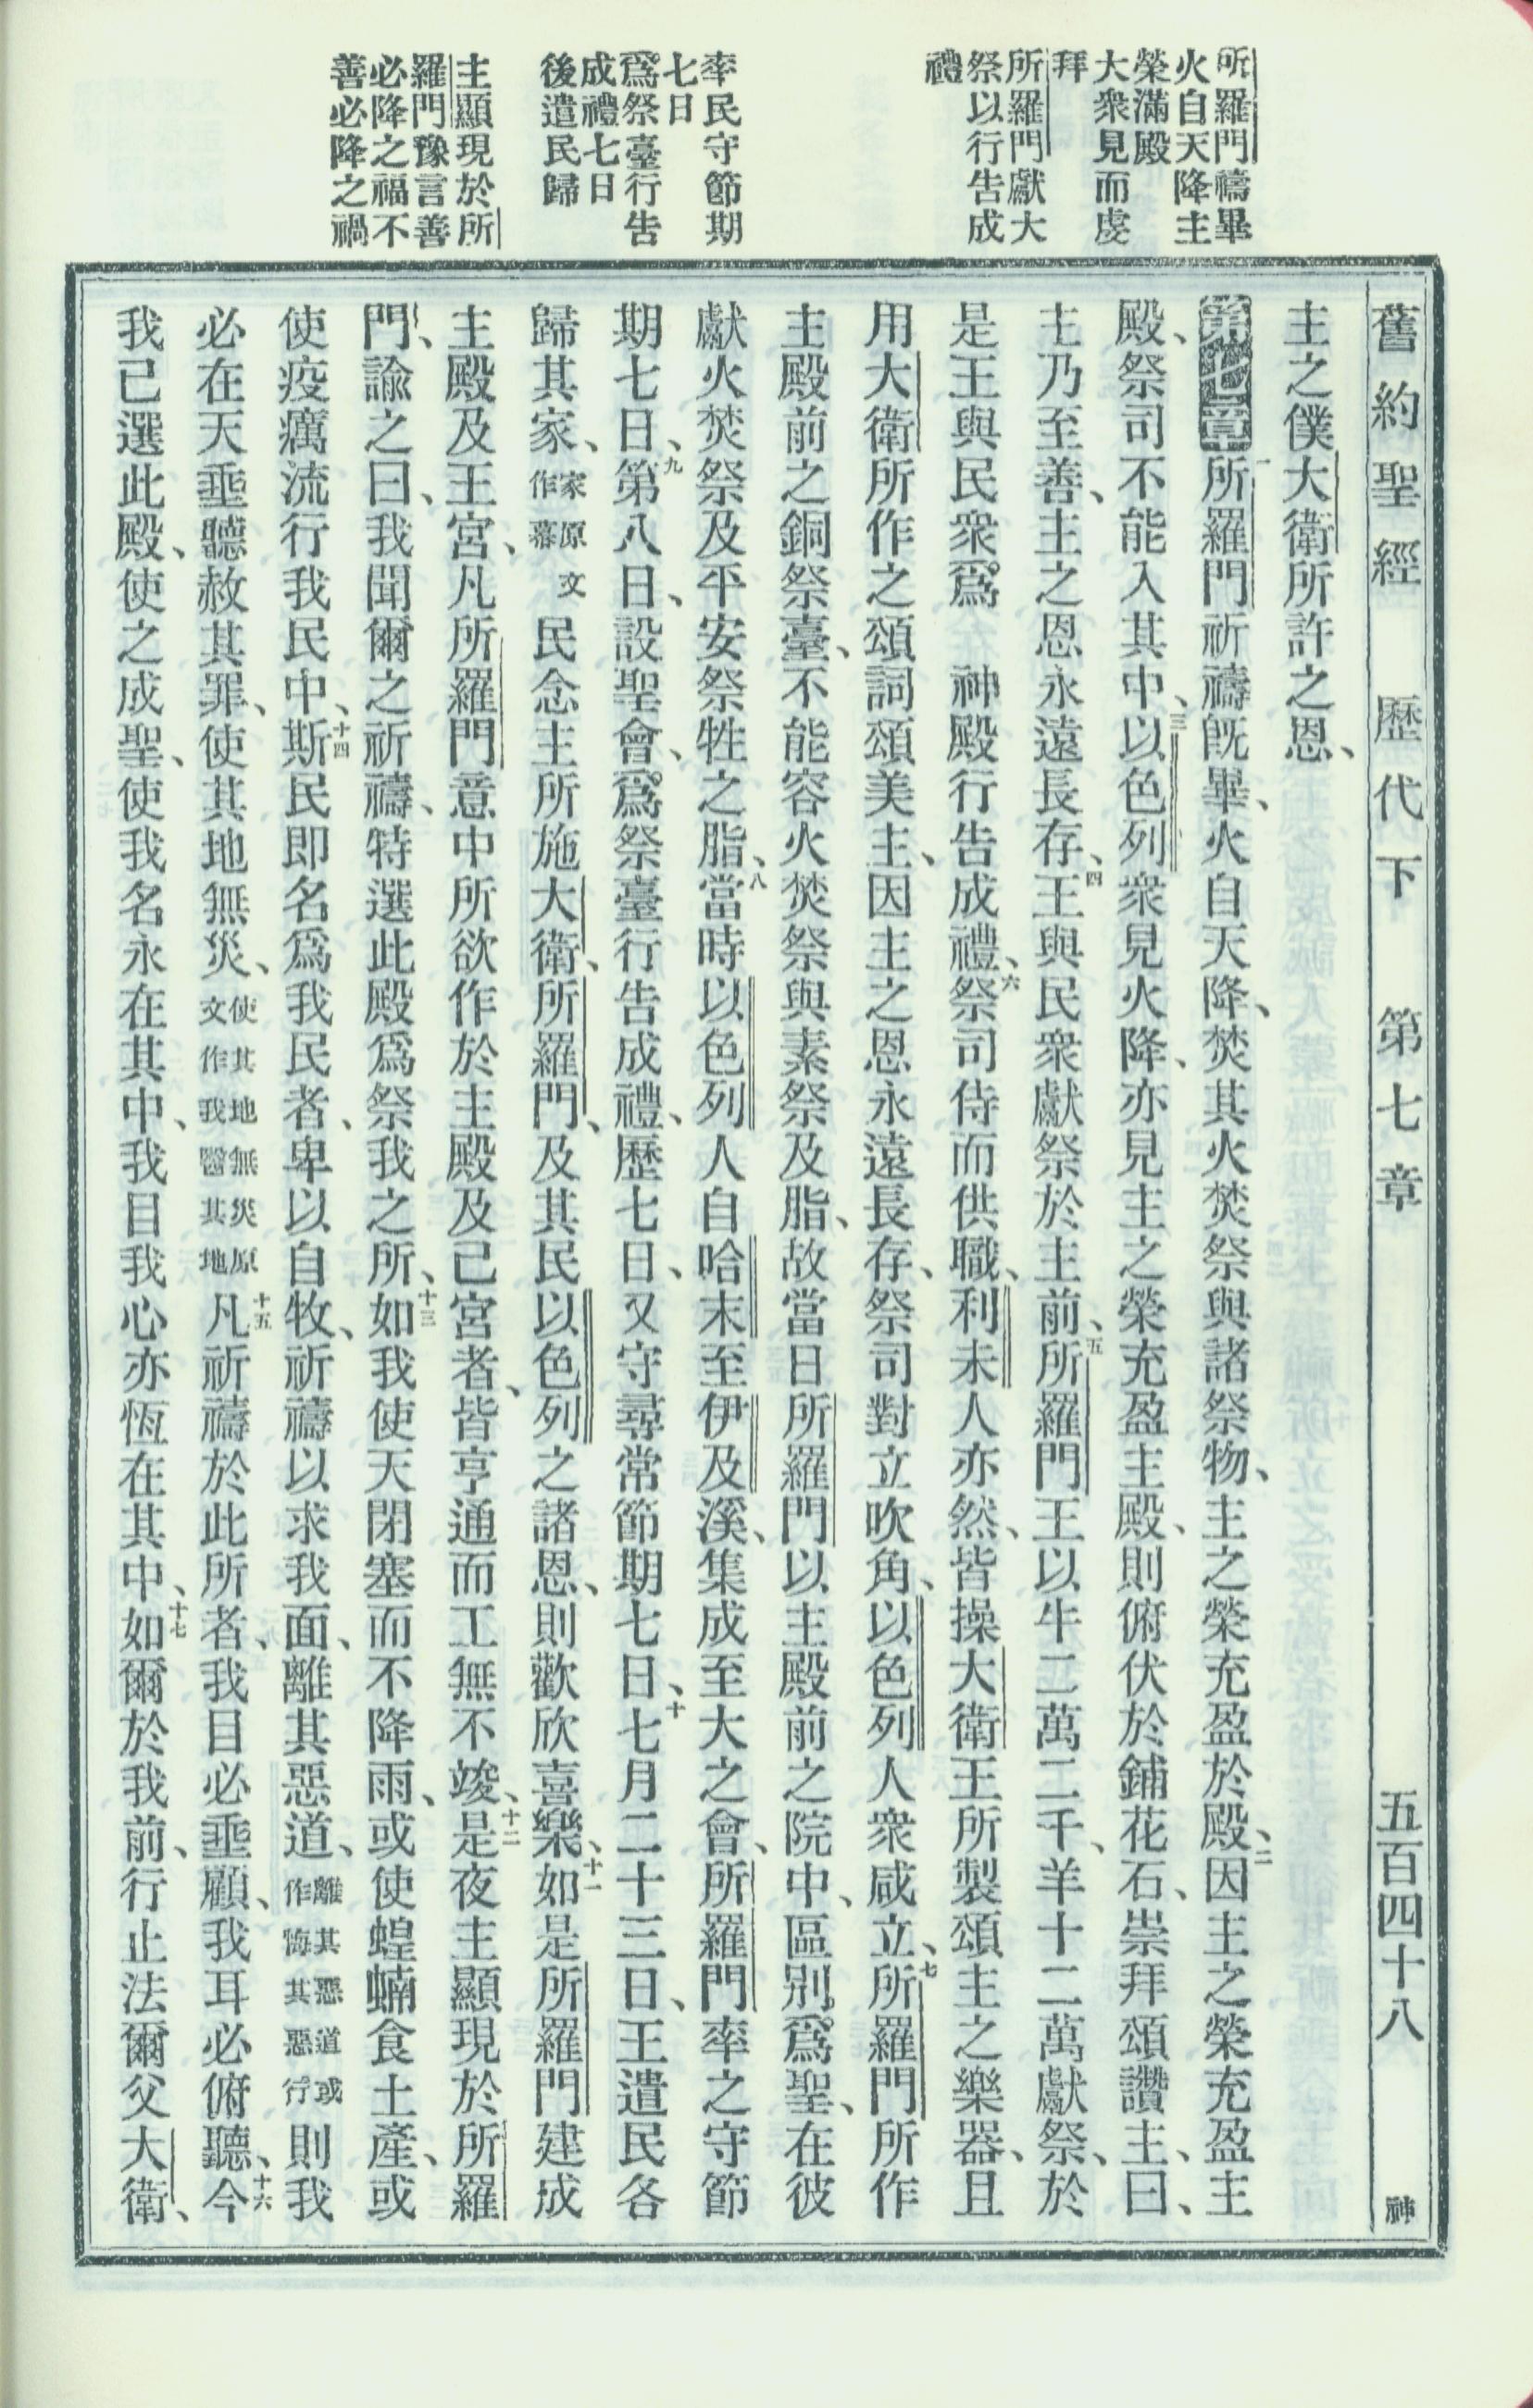 舊約聖經 歷代下 第七章 五百四十八 神
所羅門禱畢
火自天降主
榮滿殿
大衆見而虔
拜
所羅門獻大
祭以行告成
禮
率民守節期
七日
爲祭臺行告
成禮七日
後遣民歸
主顯現於所
羅門豫言善
必降之福不
善必降之禍
主之僕大衛所許之恩、
第七章 一所羅門祈禱既畢、火自天降、焚其火焚祭與諸祭物、主之榮充盈於殿、二因主之榮充盈主
殿、祭司不能入其中、三以色列衆見火降、亦見主之榮充盈主殿、則俯伏於鋪花石、崇拜頌讚主、曰、
主乃至善、主之恩永遠長存、四王與民衆獻祭於主前、五所羅門王以牛二萬二千、羊十二萬獻祭、於
是王與民衆爲 神殿行告成禮、六祭司侍而供職、利未人亦然、皆操大衛王所製頌主之樂器、且
用大衛所作之頌詞頌美主、因主之恩永遠長存、祭司對立吹角、以色列人衆咸立、七所羅門所作
主殿前之銅祭臺、不能容火焚祭與素祭及脂、故當日所羅門以主殿前之院中、區別爲聖、在彼
獻火焚祭及平安祭牲之脂、八當時以色列人自哈末至伊及溪、集成至大之會、所羅門率之守節
期七日、九第八日、設聖會、爲祭臺行告成禮、歷七日、又守尋常節期七日、十七月二十三日、王遣民各
歸其家、家原文作幕 民念主所施大衛、所羅門、及其民以色列之諸恩、則歡欣喜樂、十一如是所羅門建成
主殿及王宮、凡所羅門意中所欲作於主殿及己宮者、皆亨通而工無不竣、十二是夜主顯現於所羅
門、諭之曰、我聞爾之祈禱、特選此殿爲祭我之所、十三如我使天閉塞而不降雨、或使蝗蝻食土產、或
使疫癘流行我民中、十四斯民即名爲我民者、卑以自牧、祈禱以求我面、離其惡道、離其惡道或作悔其惡行 則我
必在天垂聽、赦其罪、使其地無災、使其地無災原文作我醫其地 十五凡祈禱於此所者、我目必垂顧、我耳必俯聽、十六今
我已選此殿、使之成聖、使我名永在其中、我目我心亦恆在其中、十七如爾於我前、行止法爾父大衛、